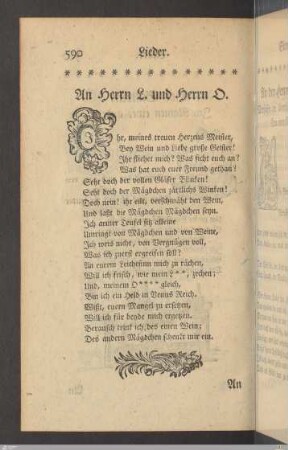 590 Lieder.
* * * * * * * * * * * * * * * * * * * *
An Herrn L. und Herrn O.
Ihr, meines treuen Herzens Meister,
Bey Wein und Liebe große Geister!
Ihr fliehet mich? Was ficht euch an?
Was hat euch euer Freund gethan?
Seht doch der vollen Gläser Blinken!
Seht doch der Mägdchen zärtlichs Winken!
Doch nein! ihr eilt, verschmäht den Wein,
Und laßt die Mägdchen Mägdchen seyn.
Ich armer Teufel sitz alleine
Umringt von Mägdchen und von Weine,
Ich weis nicht, von Vergnügen voll,
Was ich zuerst ergreifen soll?
An eurem Leichtsinn mich zu rächen,
Will ich frisch, wie mein L**, zechen;
Und, meinem O**** gleich,
Bin ich ein Held in Venus Reich.
Wißt, euern Mangel zu ersetzen,
Will ich für beyde mich ergetzen.
Berauscht trink ich des einen Wein;
Des andern Mägdchen schenkt mir ein.
An